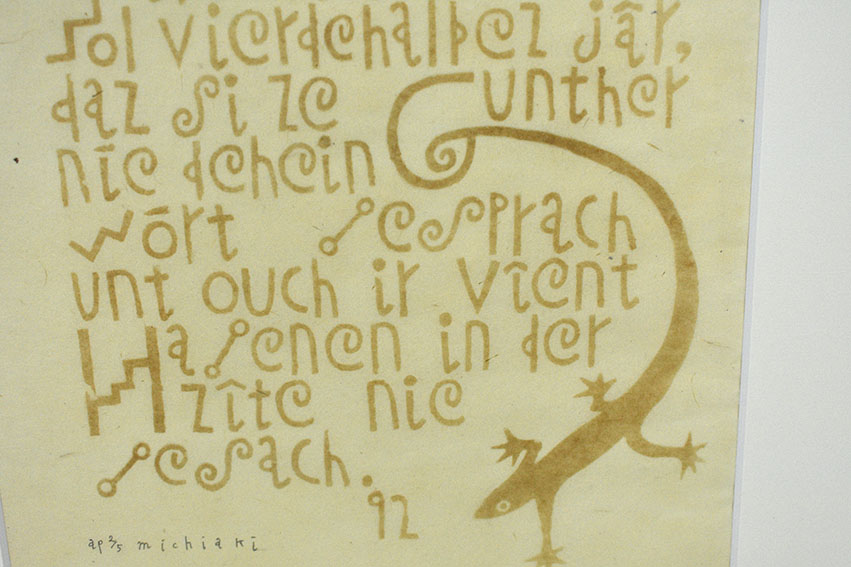 sol vierdehalbez jâr,
daz si ze Gunther
nie dehein
wort gesprach
unt ouch ir vîent
Hagenen in der
zîte nie
gesach.
92
ap 2/5 michiaki